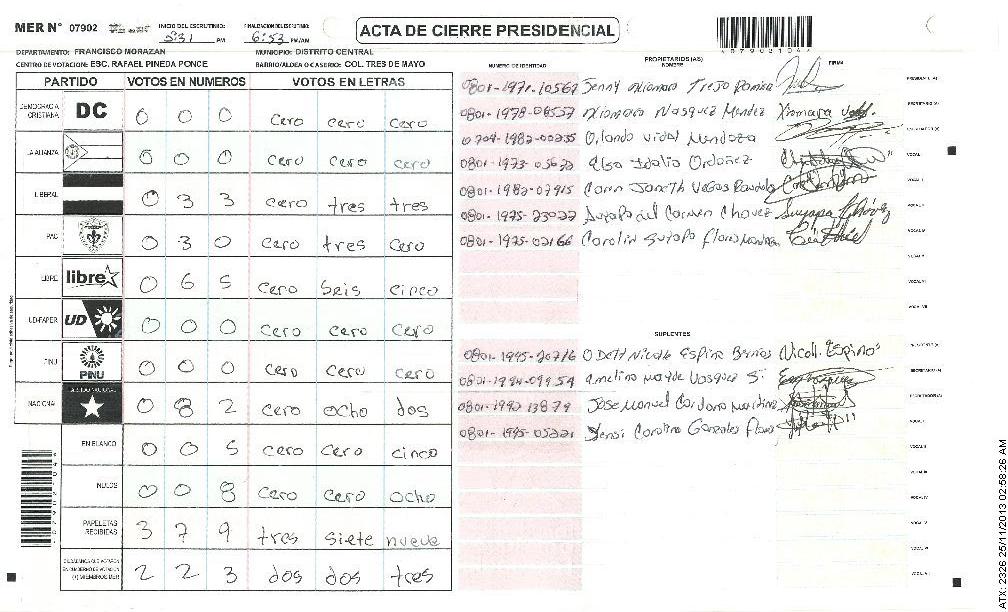 MER N° 07902 INICIO DEL ESCRUTINIO: 5:31 PM FINALIZACION DEL ESCRUTINIO: 6:53 PM/AM ACTA DE CIERRE PRESIDENCIAL
DEPARTAMENTO: FRANCISCO MORAZAN MUNICIPIO: DISTRITO CENTRAL
CENTRO DE VOTACION: ESC. RAFAEL PINEDA PONCE BARRIO/ALDEA O CASERIO: COL. TRES DE MAYO
PARTIDO VOTOS EN NUMEROS VOTOS EN LETRAS
DEMOCRACIA CRISTIANA DC 0 0 0 cero cero cero
LA ALIANZA 0 0 0 cero cero cero
LIBERAL 0 3 3 cero tres tres
PAC 0 3 0 cero tres cero
LIBRE libre 0 6 5 cero seis cinco
UD-FAPER UD 0 0 0 cero cero cero
PINU PINU 0 0 0 cero cero cero
NACIONAL PARTIDO NACIONAL 0 8 2 cero ocho dos
EN BLANCO 0 0 5 cero cero cinco
NULOS 0 0 8 cero cero ocho
PAPELETAS RECIBIDAS 3 7 9 tres siete nueve
CIUDADANOS QUE VOTARON EN CUADERNO DE VOTACION (+) MIEMBROS MER 2 2 3 dos dos tres
NUMERO DE IDENTIDAD PROPIETARIOS (AS) NOMBRE FIRMA
0801-1971-10567 Jenny Xiomara Trejo
0801-1978-06537 Xiomara Vasquez Mendez
0704-1982-00235 Orlando Vidal Mendoza
Elsa Idalia Ordoñez
0801-1982-07915 Janeth Vegas
0801-1975-23022 Carmen Chavez
0801-1975-02166 Carolin Suyapa Flores
SUPLENTES
0801-1995-20716 Odett Nicolle Espino Nicoll. Espino
0801-1994-09954 Vasquez S.
0801-1992 13879 Jose Manuel Cardona Martinez
0801-1995-05221 Carolina Gonzales Flores
ATX: 2326 25/11/2013 02:58:26 AM